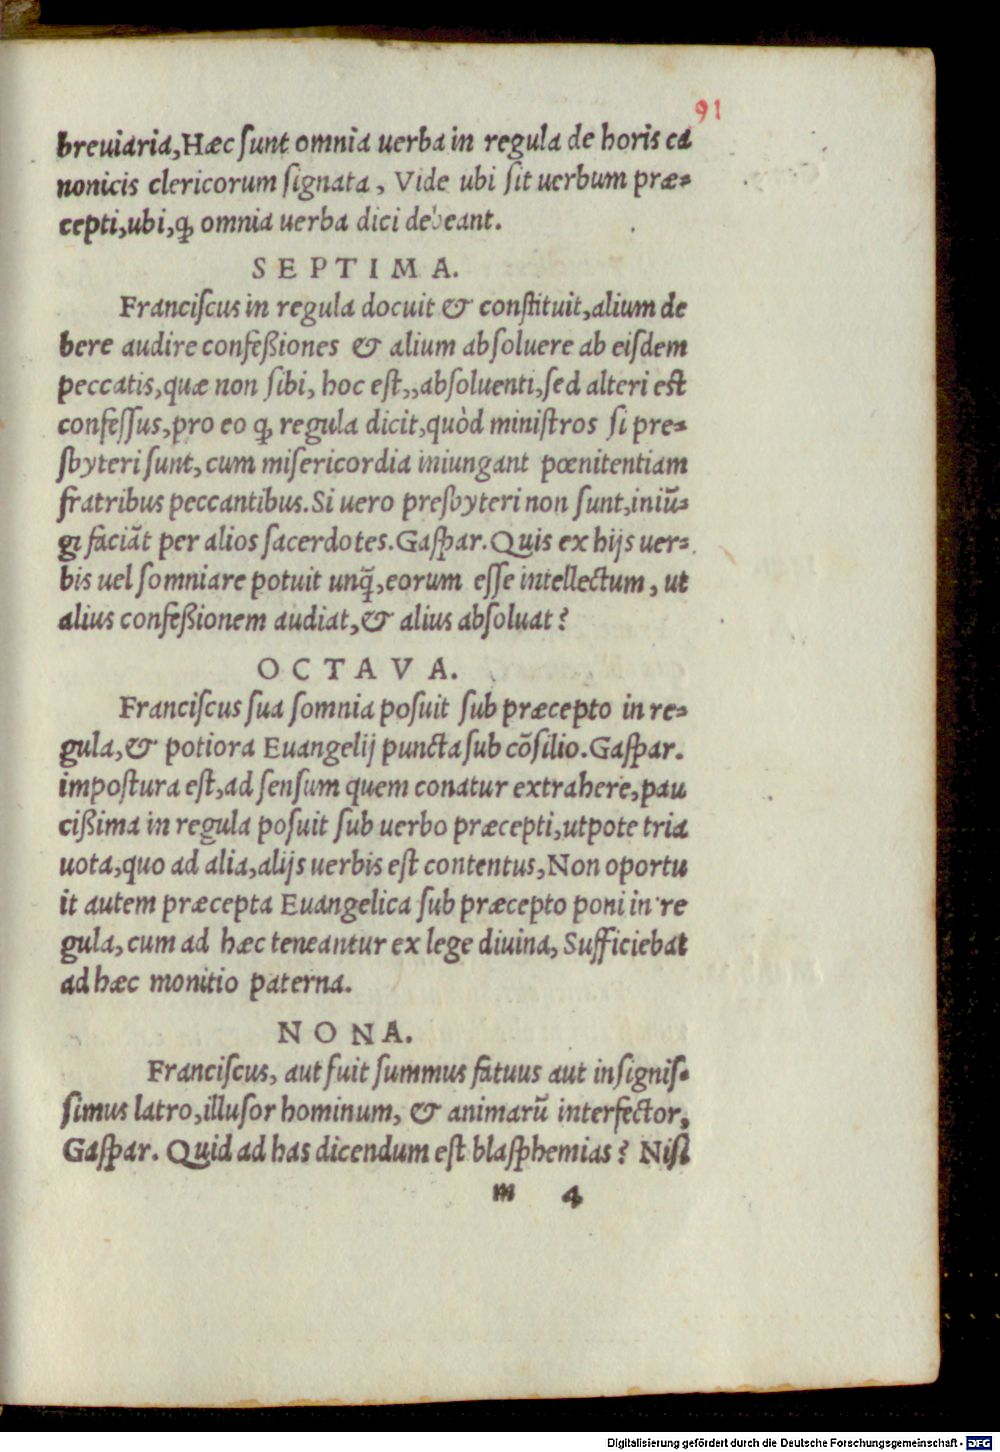 91
breuiaria,Hæc ſunt omnia uerba in regula de horis ca
nonicis clericorum ſignata, Vide ubi ſit uerbum præ-
cepti,ubi,ꝙ omnia uerba dici debeant.
SEPTIMA.
Franciſcus in regula docuit & conſtituit,alium de
bere audire confeßiones & alium abſoluere ab eiſdem
peccatis,quæ non ſibi, hoc eſt,,abſoluenti,ſed alteri est
confeſſus,pro eo ꝙ regula dicit,quòd miniſtros ſi pre-
ſbyteri ſunt, cum miſericordia iniungant pœnitentiam
fratribus peccantibus.Si uero preſbyteri non ſunt,iniũ-
gi faciãt per alios ſacerdotes.Gaſpar.Quis ex hijs uer-
bis uel ſomniare potuit unꝗ̃,eorum eſſe intellectum, ut
alius confeßionem audiat,& alius abſoluat?
OCTAVA.
Franciſcus ſua ſomnia poſuit ſub præcepto in re-
gula,& potiora Euangelij puncta ſub cõſilio.Gaſpar.
impoſtura eſt,ad ſenſum quem conatur extrahere,pau
cißima in regula poſuit ſub uerbo præcepti,utpote tria
uota,quo ad alia,alijs uerbis eſt contentus,Non oportu
it autem præcepta Euangelica ſub præcepto poni in re
gula,cum ad hæc teneantur ex lege diuina, Sufficiebat
ad hæc monitio paterna.
NONA.
Franciſcus, aut fuit ſummus fatuus aut inſigniſ-
ſimus latro,illuſor hominum, & animarũ interfector,
Gaſpar. Quid ad has dicendum eſt blaſphemias? Niſi
m 4
Digitalisierung gefördert durch die Deutsche Forschungsgemeinschaft - DFG